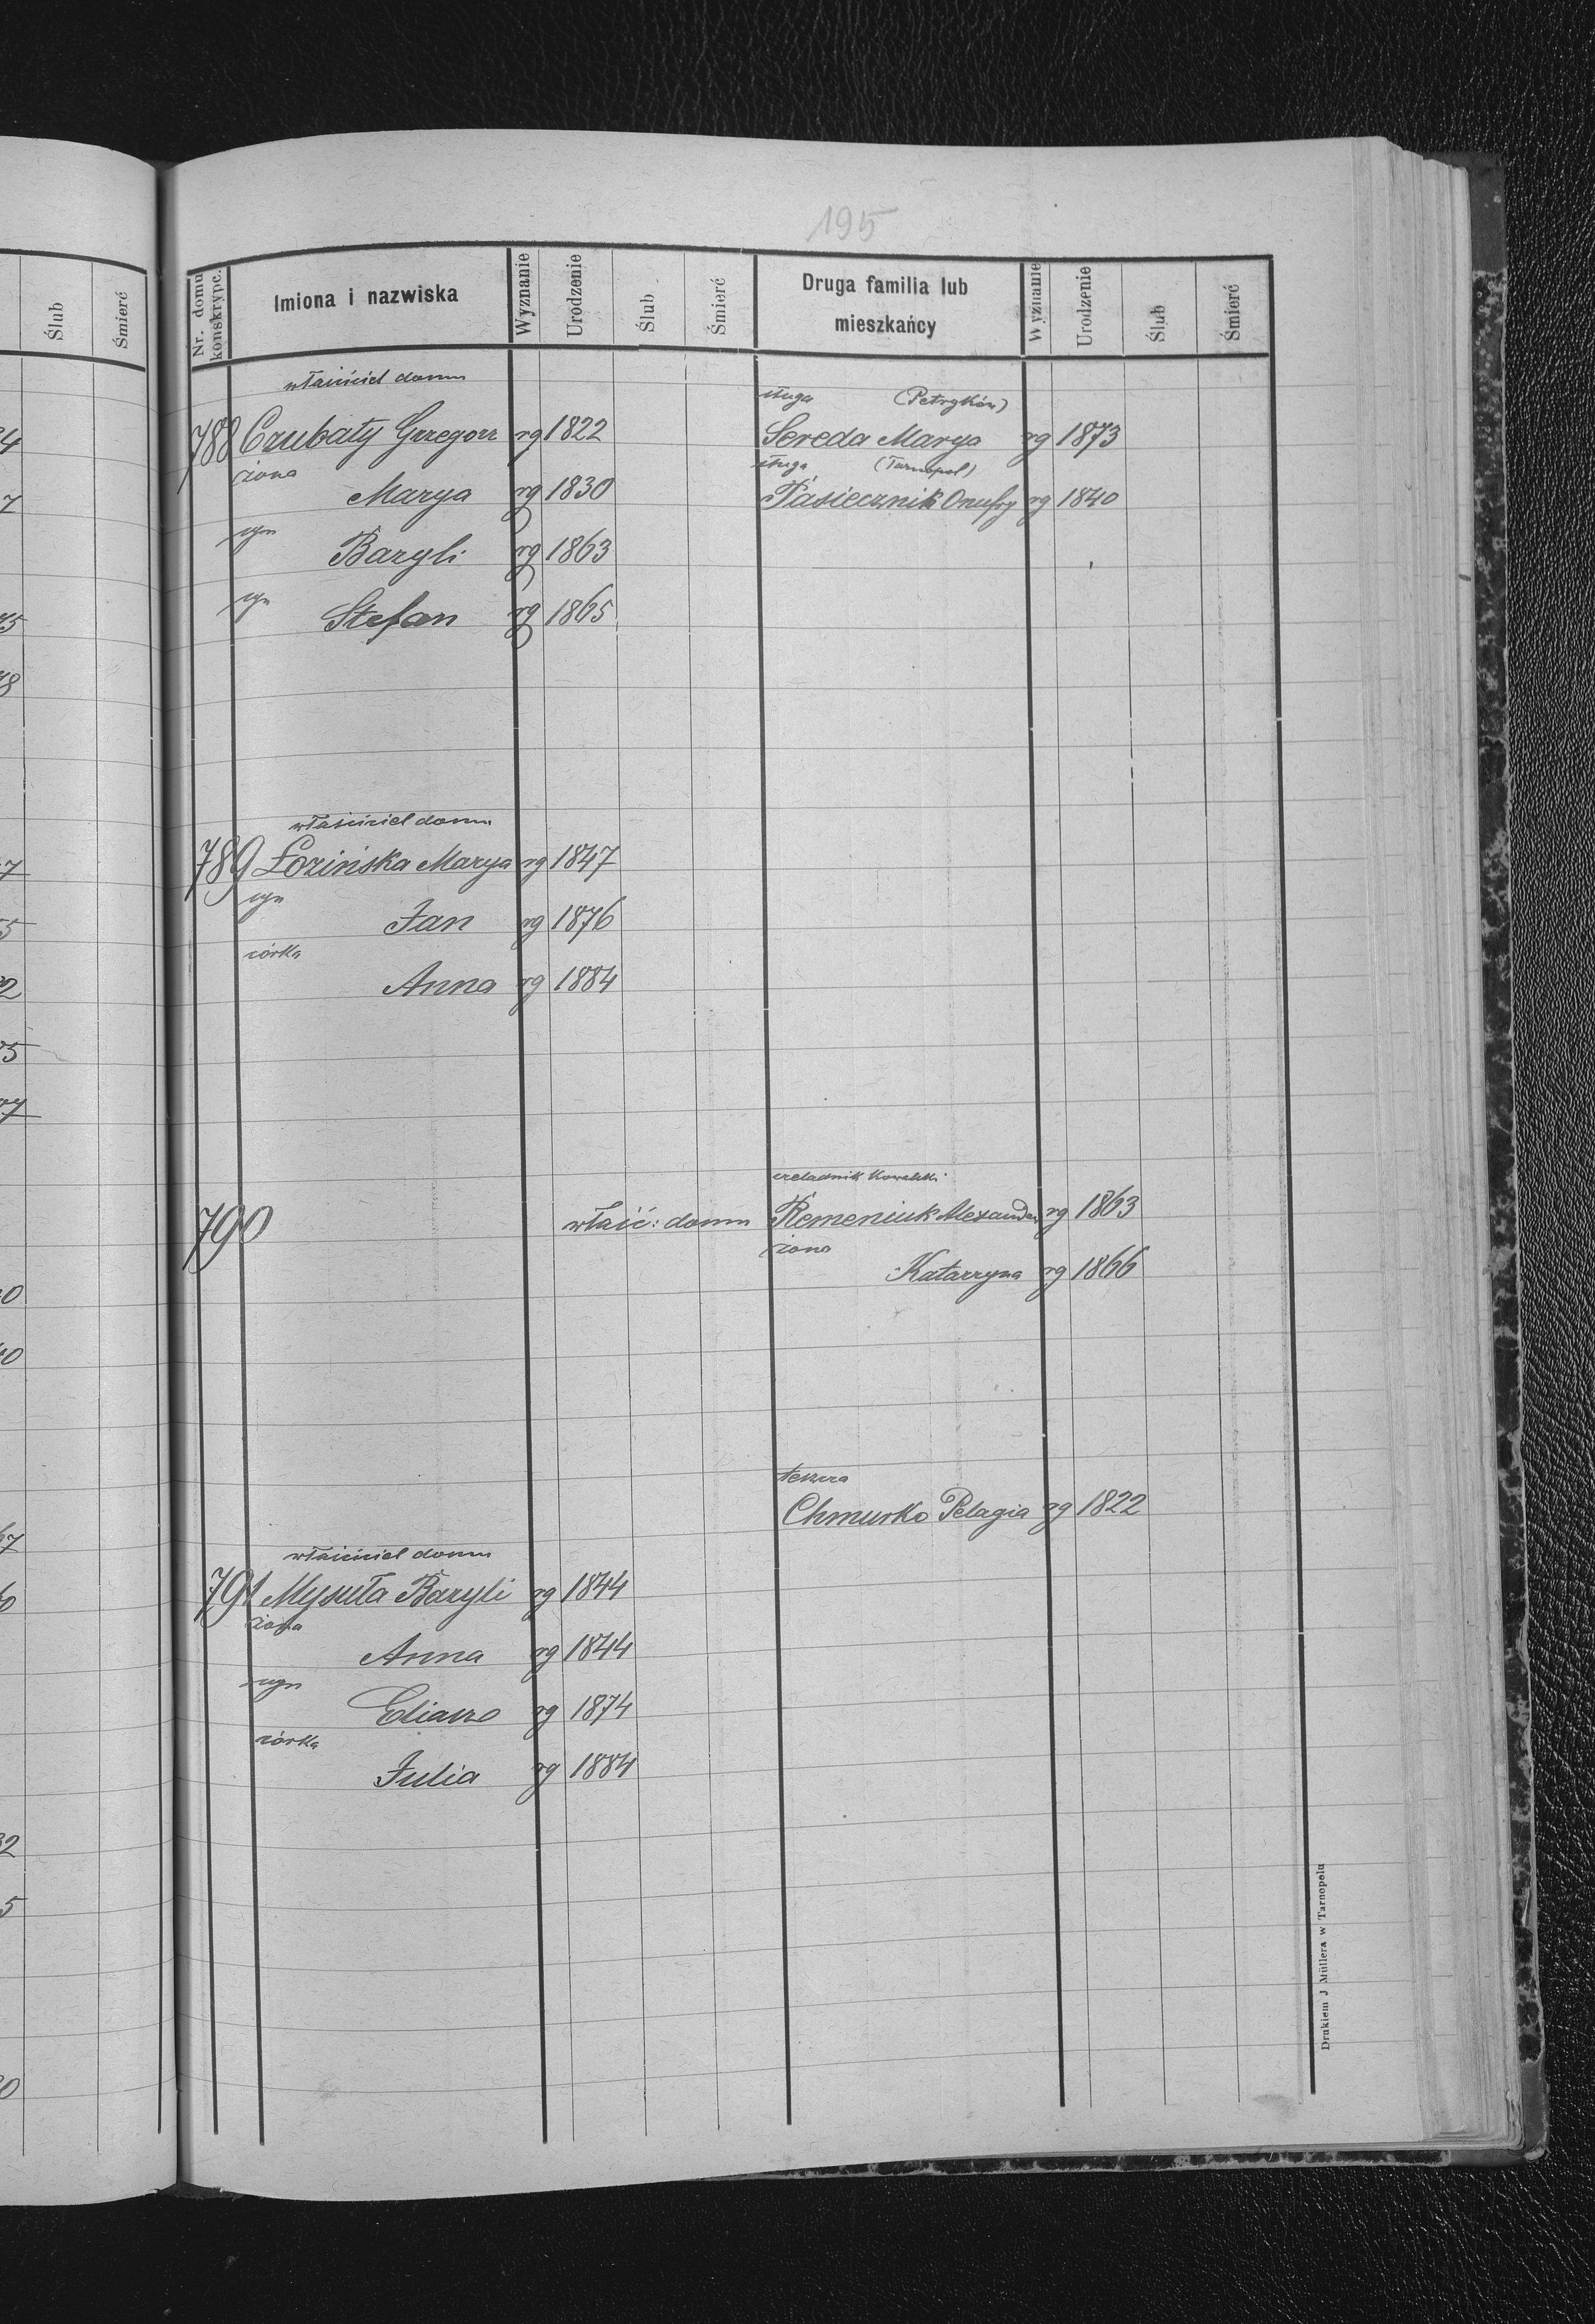 195
Ślub Śmierć
Nr. domu konskrypc. Imiona i nazwiska Wyznanie Urodzenie Ślub Śmierć Druga familia lub mieszkańcy Wyznanie Urodzenie Ślub Śmierć
właściciel domu
sługa (Petryków)
788 Czubaty Grzegorz rg 1822 Sereda Marya rg 1873
żona sługa (Tarnopol)
Marya rg 1830 Pasiecznik Onufry rg 1840
syn
Bazyli rg 1863
syn
Stefan rg 1865
właściciel domu
789 Łozińska Marya rg 1847
syn
Jan rg 1876
córka
Anna rg 1884
czeladnik kowalski
790 właść: domu Remeniuk Alexander rg 1863
żona
Katarzyna rg 1866
Chmurko Pelagia rg 1822
właściciel domu
791 Mysuła Bazyli rg 1844
żona
Anna rg 1844
syn
Eliasz rg 1874
córka
Julia rg 1884
Drukiem J Müllera w Tarnopolu